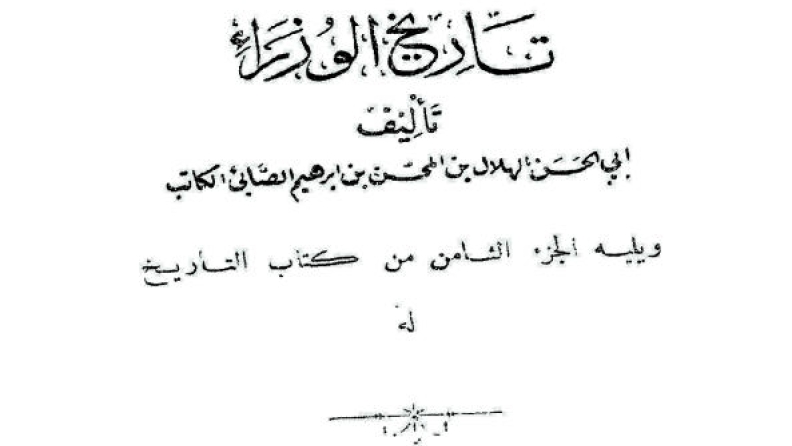 تاريخ الوزراء
تأليف
ابي الحسن الهلال بن المحسن بن ابرهيم الصابئ الكاتب
ويليه الجزء الثامن من كتاب التاريخ
له